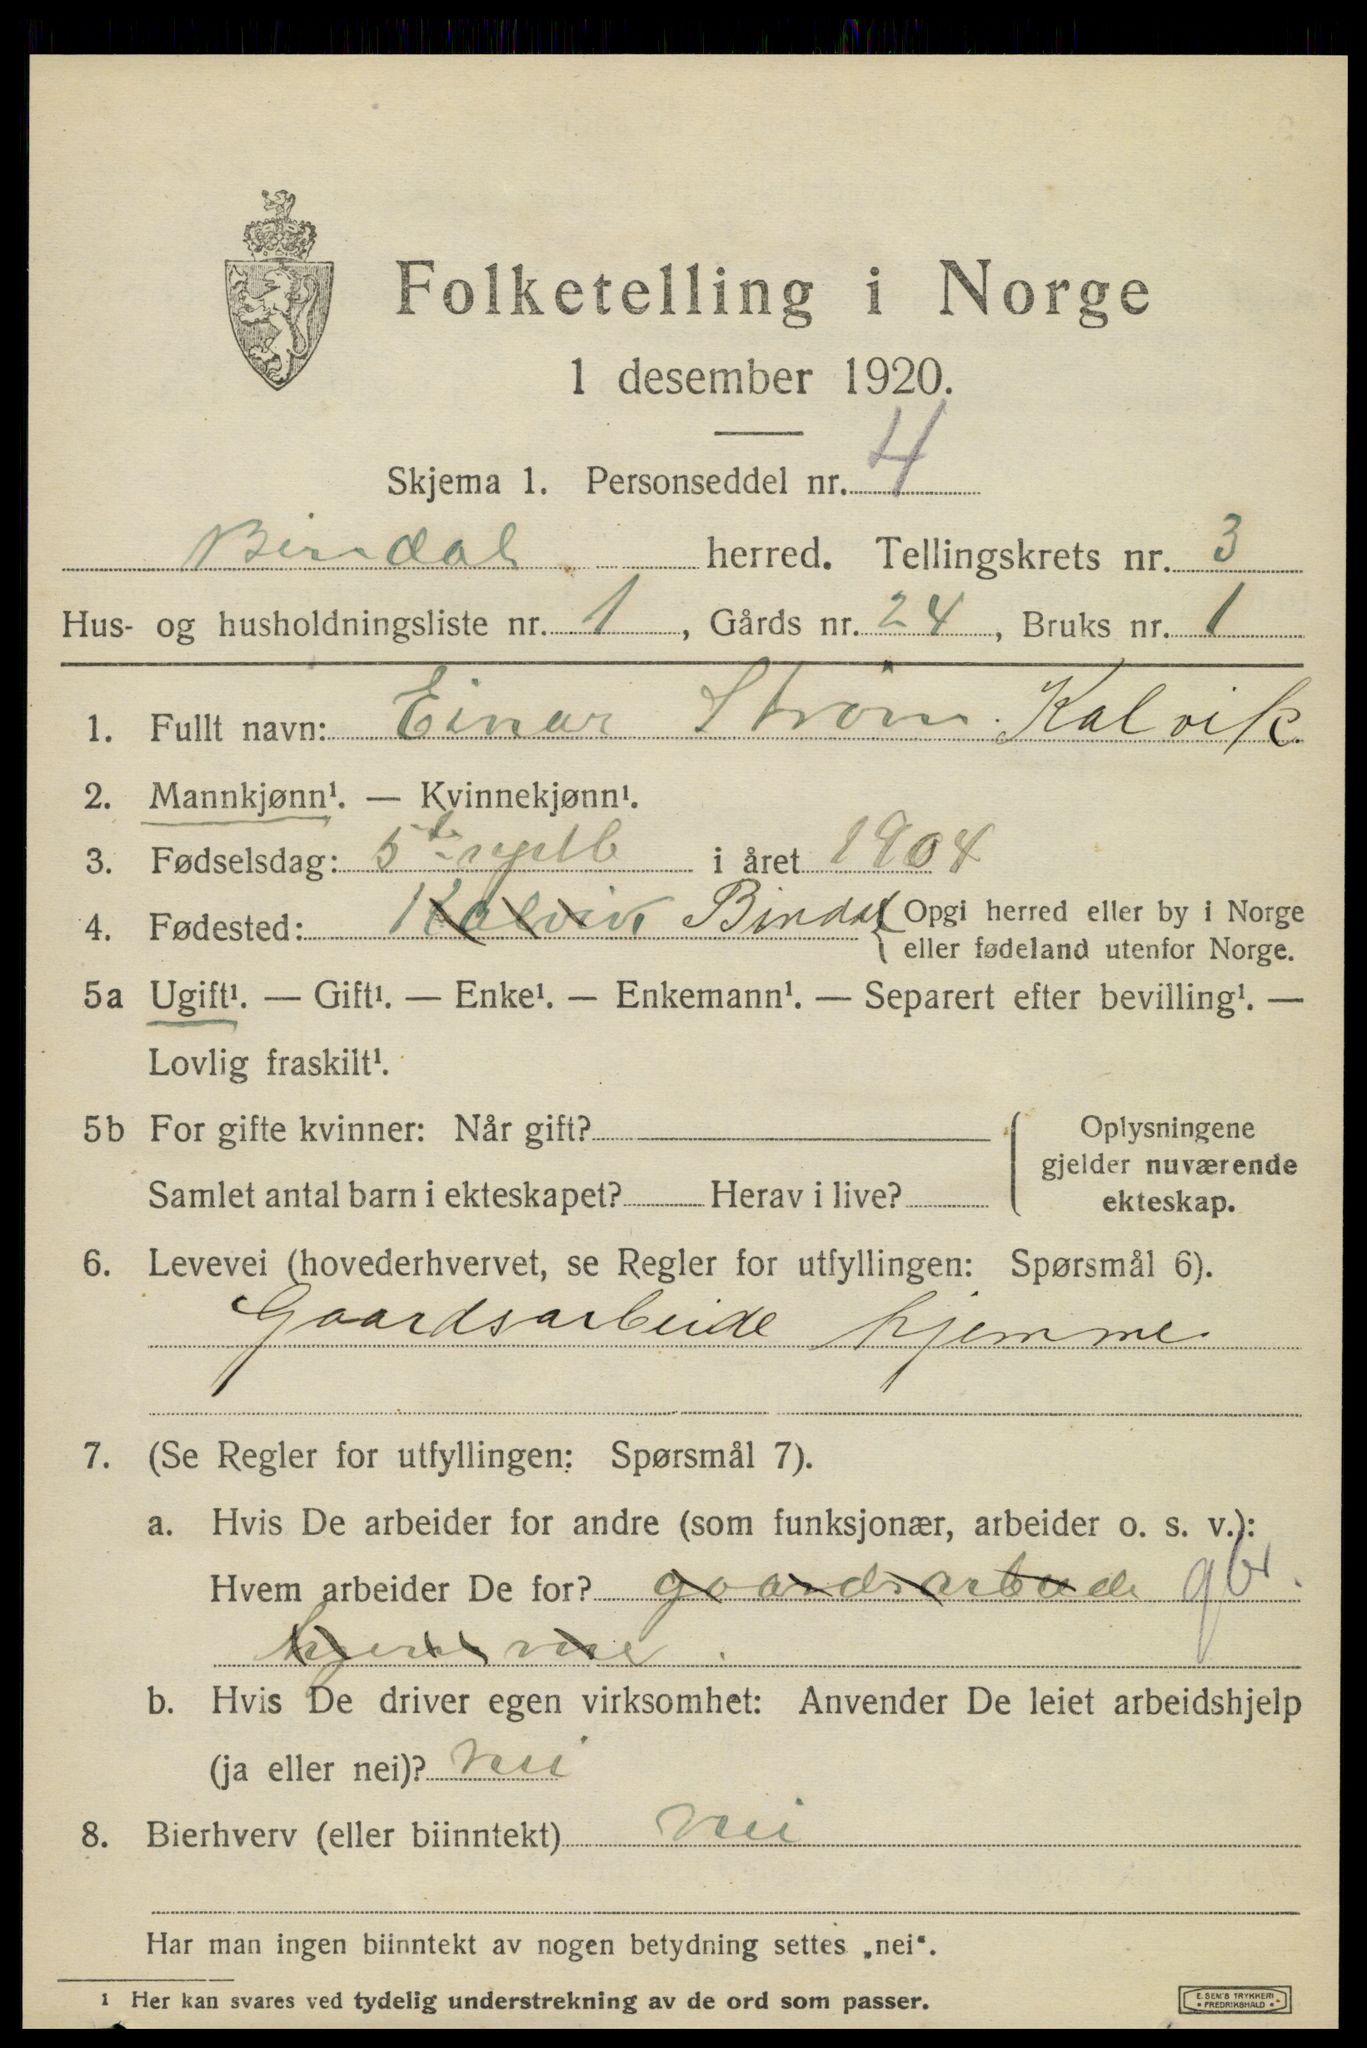 Folketelling i Norge
1 desember 1920.
Skjema 1. Personseddel nr. 4
Bindal herred. Tellingskrets nr. 3
Hus- og husholdningsliste nr. 1, Gårds nr. 24, Bruks nr. 1
1. Fullt navn: Einar Strøm Kalvik.
2. Mannkjønn¹. — Kvinnekjønn¹.
3. Fødselsdag: 5te i året 1904
4. Fødested: Kalvik Bindal { Opgi herred eller by i Norge
eller fødeland utenfor Norge.
5a Ugift¹. — Gift¹. — Enke¹. — Enkemann¹. — Separert efter bevilling¹. —
Lovlig fraskilt¹.
5b For gifte kvinner: Når gift?
Samlet antal barn i ekteskapet? Herav i live?
Oplysningene
gjelder nuværende
ekteskap.
6. Levevei (hovederhvervet, se Regler for utfyllingen: Spørsmål 6).
Gaardsarbeide hjemme
7. (Se Regler for utfyllingen: Spørsmål 7).
a. Hvis De arbeider for andre (som funksjonær, arbeider o. s. v.):
Hvem arbeider De for? gaardsarbeide gbr.
hjemme.
b. Hvis De driver egen virksomhet: Anvender De leiet arbeidshjelp
(ja eller nei)? nei
8. Bierhverv (eller biinntekt) nei
Har man ingen biinntekt av nogen betydning settes „nei“.
1 Her kan svares ved tydelig understrekning av de ord som passer.
E. SEM'S TRYKKERI
• FREDRIKSHALD •